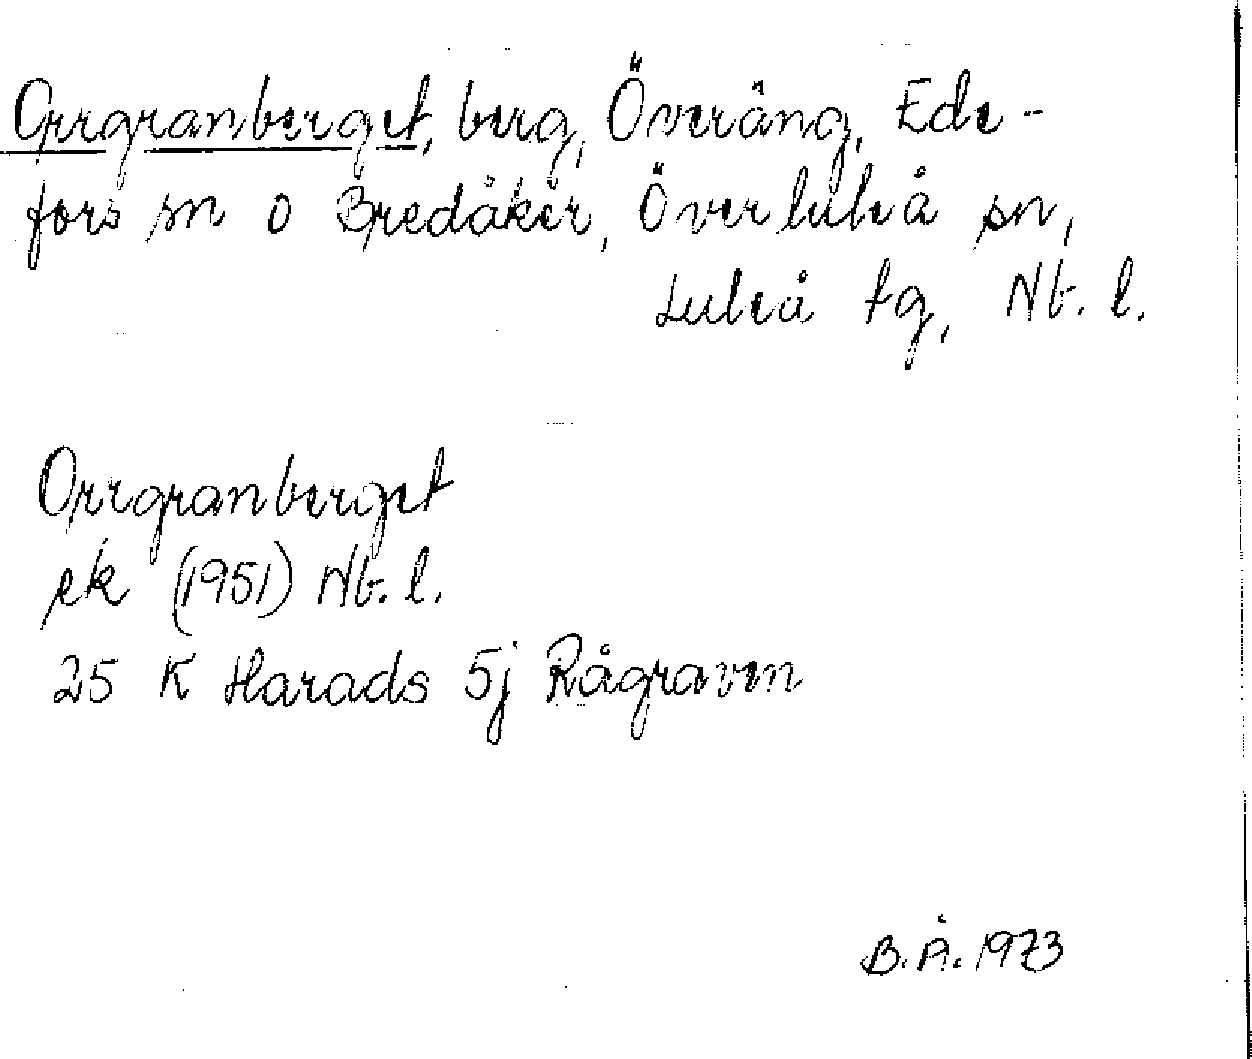 Orrgranberget, berg, Överäng, Ede-
fors sn o Bredåker, Överluleå sn,
Luleå tg, Nb. l.
Orrgranberget
ek (1951) Nb. l.
25 K Harads 5j Rågraven
B. Å. 1973